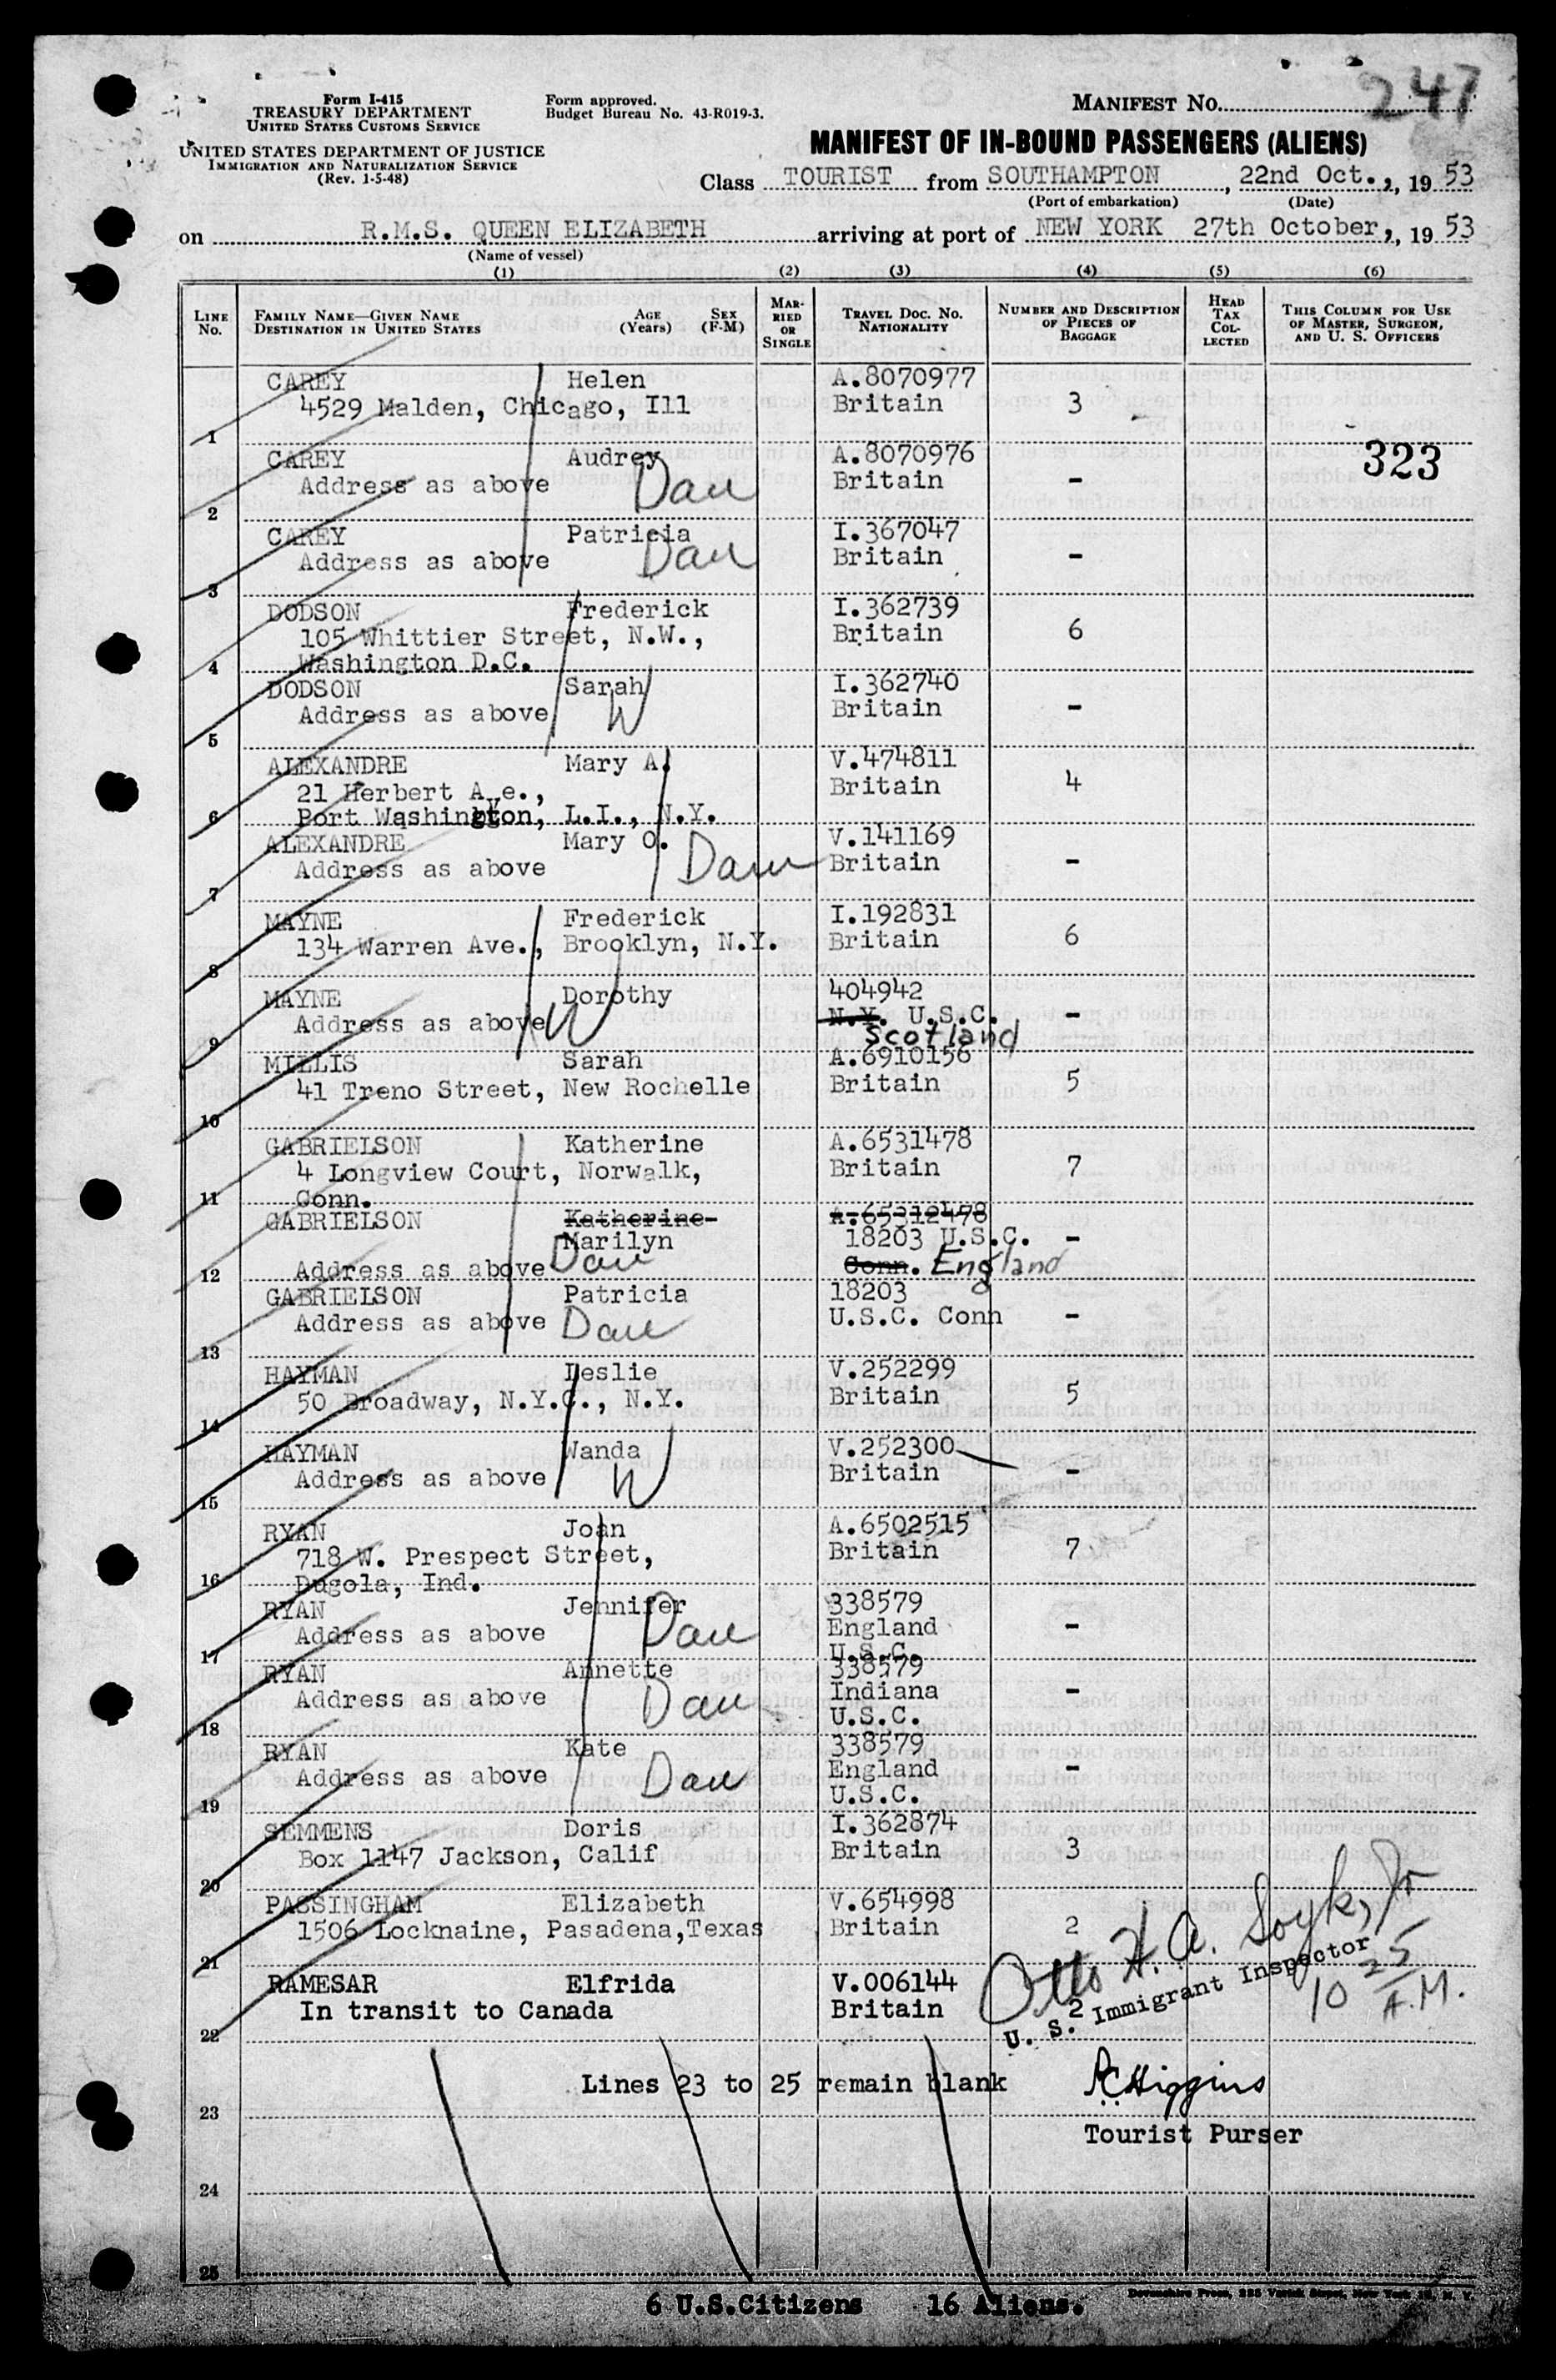 247
Form I-415
TREASURY DEPARTMENT
UNITED STATES CUSTOMS SERVICE
UNITED STATES DEPARTMENT OF JUSTICE
IMMIGRATION AND NATURALIZATION SERVICE
(Rev. 1-5-48)
Form approved.
Budget Bureau No. 43-R019-3.
MANIFEST No.
MANIFEST OF IN-BOUND PASSENGERS (ALIENS)
Class TOURIST from SOUTHAMPTON, 22nd Oct., 19 53
(Port of embarkation) (Date)
on R.M.S. QUEEN ELIZABETH arriving at port of NEW YORK 27th October, 19 53
(Name of vessel)
(1) (2) (3) (4) (5) (6)
LINE No. FAMILY NAME—GIVEN NAME DESTINATION IN UNITED STATES AGE (Years) SEX (F-M) MARRIED OR SINGLE TRAVEL DOC. NO. NATIONALITY NUMBER AND DESCRIPTION OF PIECES OF BAGGAGE HEAD TAX COLLECTED THIS COLUMN FOR USE OF MASTER, SURGEON, AND U. S. OFFICERS
CAREY Helen A.8070977
4529 Malden, Chicago, Ill Britain 3
1
CAREY Audrey A.8070976 323
Address as above Dau Britain -
2
CAREY Patricia I.367047
Address as above Dau Britain -
3
DODSON Frederick I.362739
105 Whittier Street, N.W., Britain 6
4 Washington D.C.
DODSON Sarah I.362740
Address as above W Britain -
5
ALEXANDRE Mary A. V.474811
21 Herbert Ave., Britain 4
6 Port Washington, L.I., N.Y.
ALEXANDRE Mary O. V.141169
Address as above Dau Britain -
7
MAYNE Frederick I.192831
134 Warren Ave., Brooklyn, N.Y. Britain 6
8
MAYNE Dorothy 404942
Address as above W N.Y. U.S.C. -
9 Scotland
MILLIS Sarah A.6910156
41 Treno Street, New Rochelle Britain 5
10
GABRIELSON Katherine A.6531478
4 Longview Court, Norwalk, Britain 7
11 Conn.
GABRIELSON Katherine A.65312478
Marilyn 18203 U.S.C. -
12 Address as above Dau Conn. England
GABRIELSON Patricia 18203
Address as above Dau U.S.C. Conn -
13
HAYMAN Leslie V.252299
50 Broadway, N.Y.C., N.Y. Britain 5
14
HAYMAN Wanda V.252300
Address as above W Britain -
15
RYAN Joan A.6502515
718 W. Prespect Street, Britain 7
16 Dugola, Ind.
RYAN Jennifer 338579
Address as above Dau England -
17 U.S.C.
RYAN Annette 338579
Address as above Dau Indiana -
18 U.S.C.
RYAN Kate 338579
Address as above Dau England -
19 U.S.C.
SEMMENS Doris I.362874
Box 1147 Jackson, Calif Britain 3
20
PASSINGHAM Elizabeth V.654998
1506 Locknaine, Pasadena,Texas Britain 2
21
RAMESAR Elfrida V.006144
In transit to Canada Britain 2
22
Otto H. A. Soyk, Jr
U. S. Immigrant Inspector
10 25 A.M.
Lines 23 to 25 remain blank
23
RC Higgins
Tourist Purser
24
25
6 U.S.Citizens 16 Aliens.